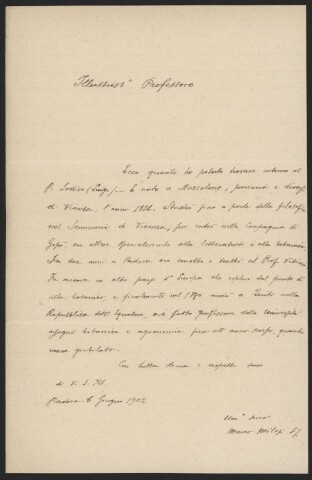 Illustriss° Professore
Ecco quanto ho potuto trovare intorno al
P. Sodiro (Luigi). — È nato a Muzzolone, provincia e diocesi
di Vicenza, l'anno 1836. Studiò fino a parte della filosofia
nel Seminario di Vicenza, poi entrò nella Compagnia di
Gesù, ed attese specialmente alla letteratura e alla botanica.
Fu due anni a Padova
Fu ancora in altre parti d'Europa che esplorò dal punto di
vista botanico, e finalmente nel 1870 andò a Quito nella
Repubblica dell'Equatore, ove fatto professore della Università
insegnò botanica e agronomia fino all'anno scorso, quando
venne giubilato.
Con tutta stima e rispetto sono
di V. S. Ill
Padova 6 Giugno 1902
Um° servo